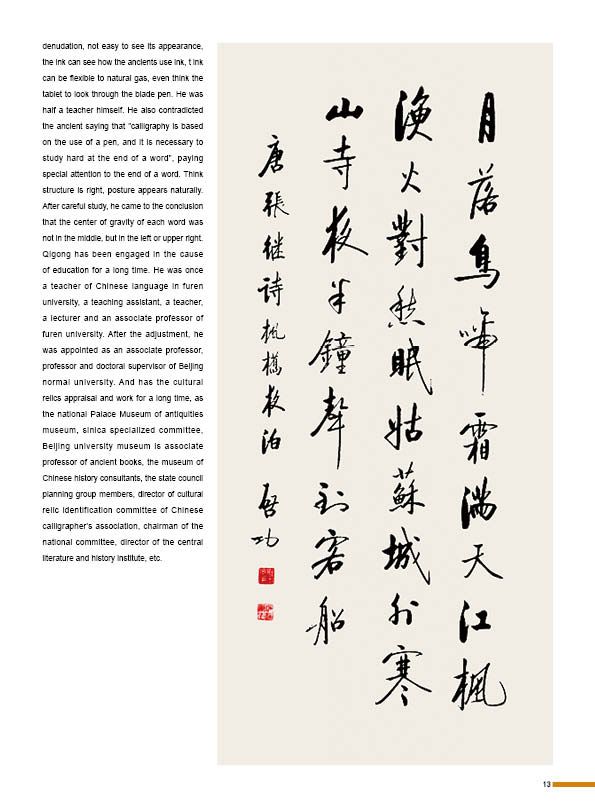 denudation, not easy to see its appearance,
the ink can see how the ancients use ink, t ink
can be flexible to natural gas, even think the
tablet to look through the blade pen. He was
half a teacher himself. He also contradicted
the ancient saying that "calligraphy is based
on the use of a pen, and it is necessary to
study hard at the end of a word", paying
special attention to the end of a word. Think
structure is right, posture appears naturally.
After careful study, he came to the conclusion
that the center of gravity of each word was
not in the middle, but in the left or upper right.
Qigong has been engaged in the cause
of education for a long time. He was once
a teacher of Chinese language in furen
university, a teaching assistant, a teacher,
a lecturer and an associate professor of
furen university. After the adjustment, he
was appointed as an associate professor,
professor and doctoral supervisor of Beijing
normal university. And has the cultural
relics appraisal and work for a long time, as
the national Palace Museum of antiquities
museum, sinica specialized committee,
Beijing university museum is associate
professor of ancient books, the museum of
Chinese history consultants, the state council
planning group members, director of cultural
relic identification committee of Chinese
calligrapher's association, chairman of the
national committee, director of the central
literature and history institute, etc.
月落烏啼霜滿天江楓
漁火對愁眠姑蘇城外寒
山寺夜半鐘聲到客船
唐張继詩楓橋夜泊 啓功
13